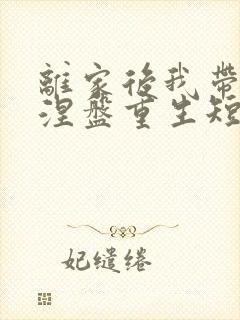 離家後我帶
涅盤重生短
妃繾綣